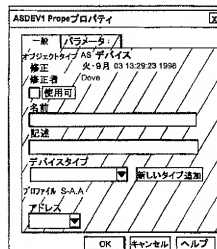 ASDEV1 Propeプロパティ X
一般 パラメータ:
オブジェクトタイプ AS デバイス
修正 火・9月 03 13:29:23 1998
修正者 Dove
使用可
名前
記述
デバイスタイプ
新しいタイプ追加
プロファイル S-A.A
アドレス
OK キャンセル ヘルプ